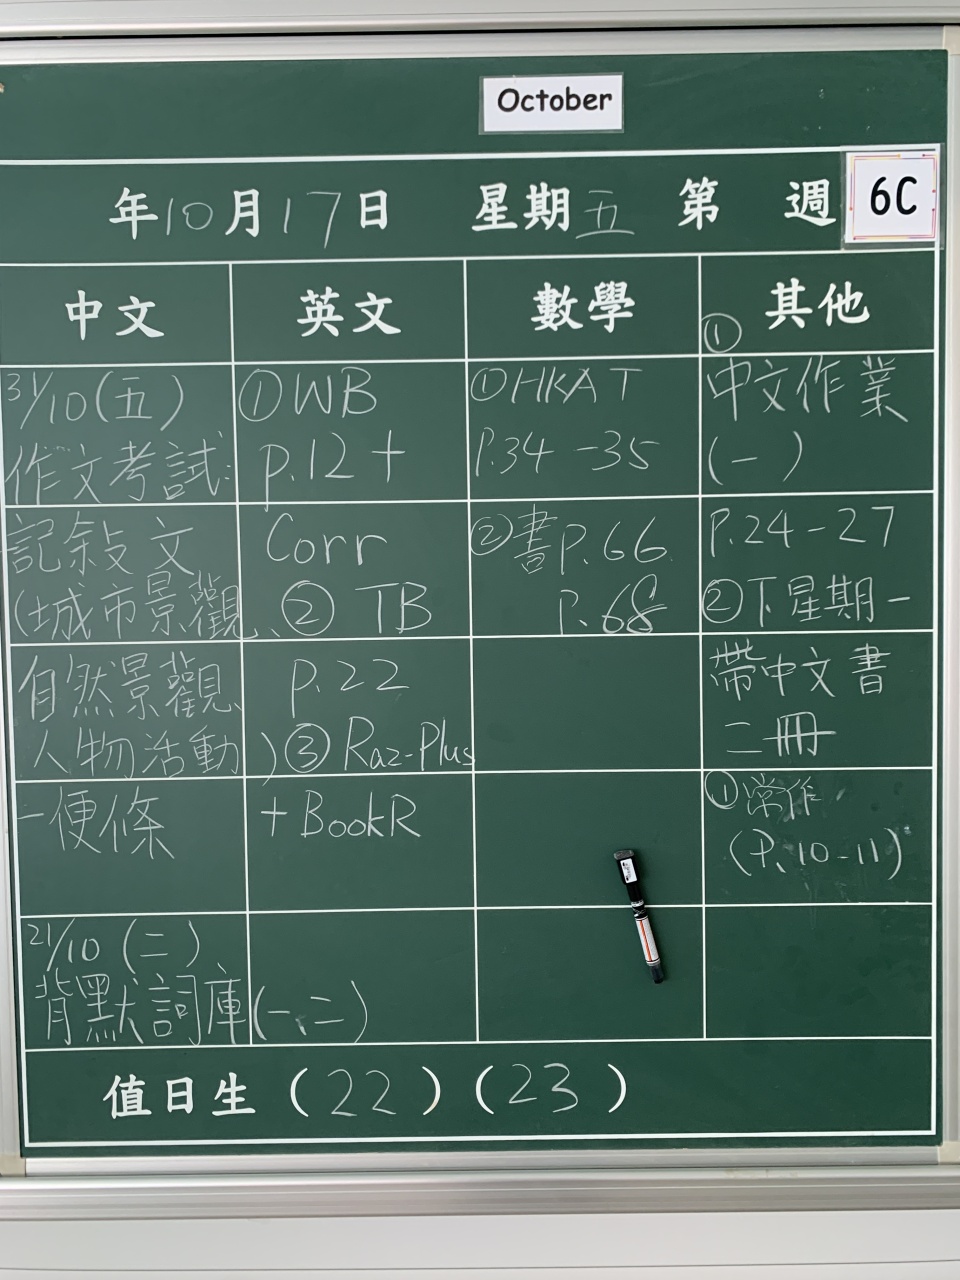 October
年10月17日 星期五 第 週 6C
中文
31/10(五)
作文考試:
記敍文
(城市景觀、
自然景觀、
人物活動)
一便條
21/10 (二)
背默詞庫(一、二)
英文
①WB
p.12+
Corr
② TB
p.22
③ Raz-Plus
+BookR
數學
①HKAT
P.34-35
②書P.66
P.68
其他
①
中文作業
(一)
P.24-27
②下星期一
帶中文書
二冊
①常作
(P.10-11)
值日生(22)(23)